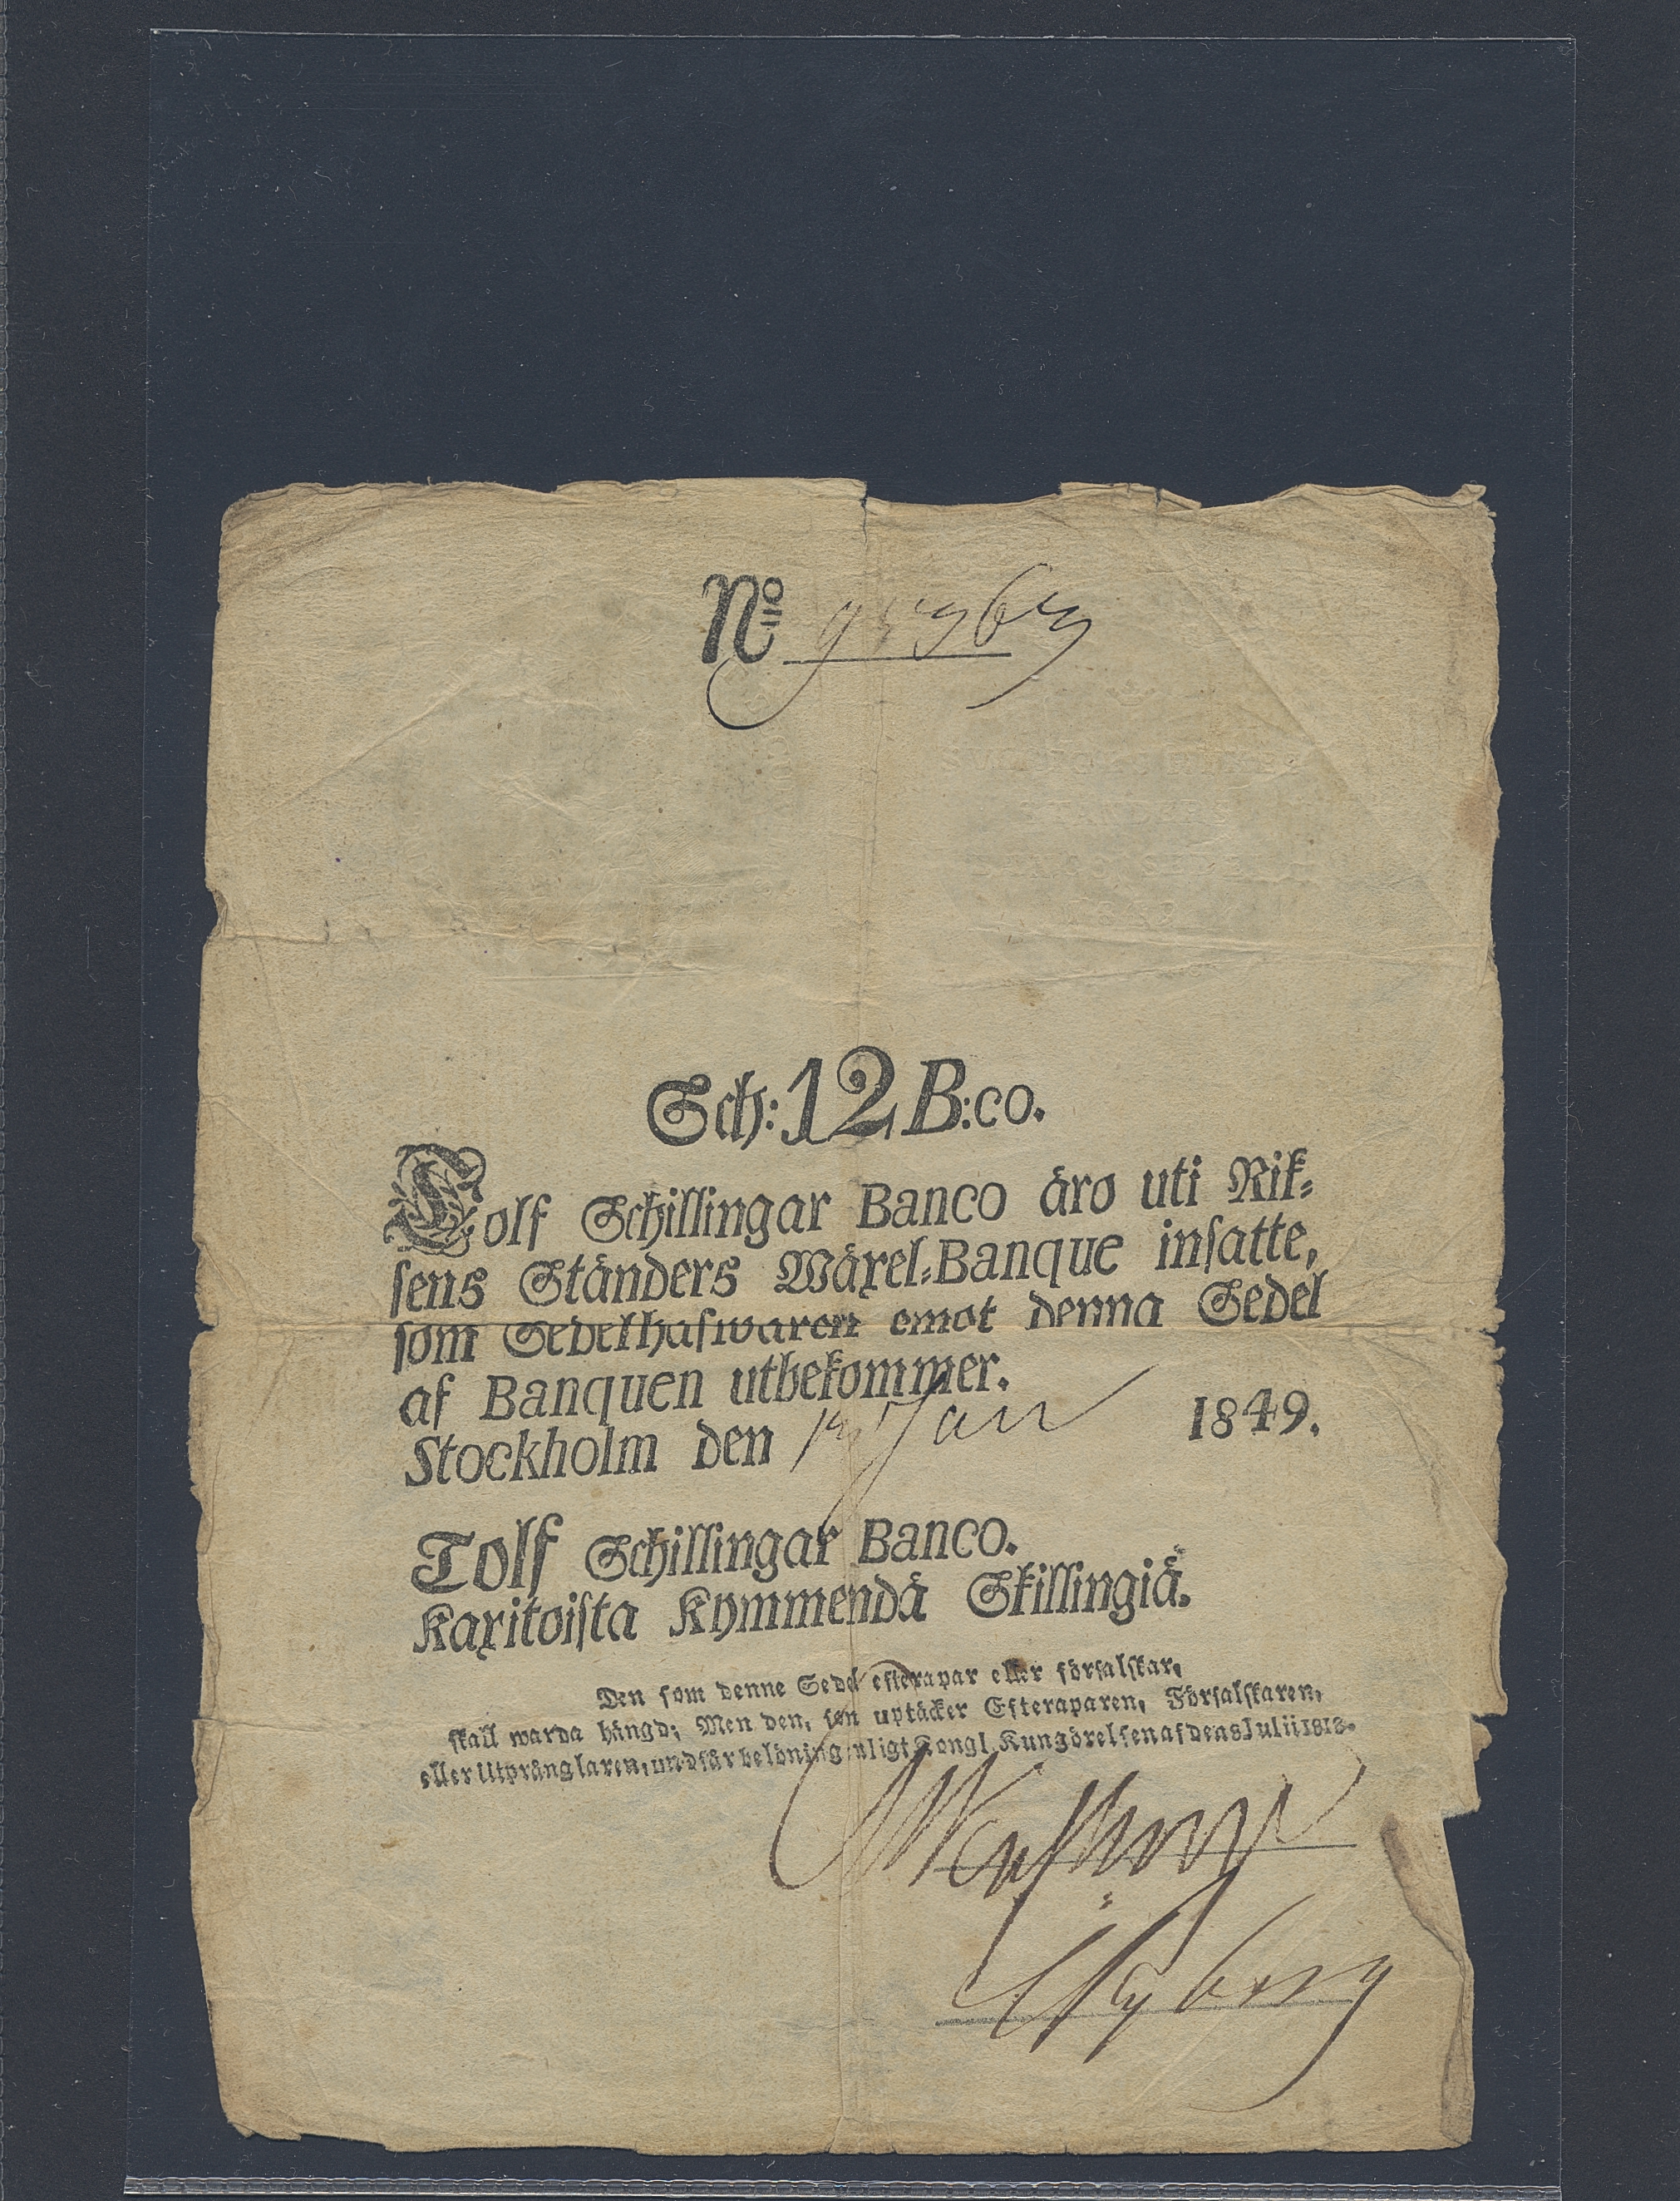 No
Sch: 12 B:co.
Tolf Schillingar Banco äro uti Rik=
sens Ständers Wäxel=Banque insatte,
som Sedelhafwaren emot denna Sedel
af Banquen utbekommer.
Stockholm den Jan 1849.
Tolf Schillingar Banco.
Kaxitoista Kymmendä Skillingiä.
Den som denne Sedel efterapar eller förfalskar,
skall warda hängd; Men den, som uptäcker Efteraparen, Förfalskaren,
eller Utprånglaren, undfår belöning enligt Kongl. Kungörelsen af den 28 Julii 1818.